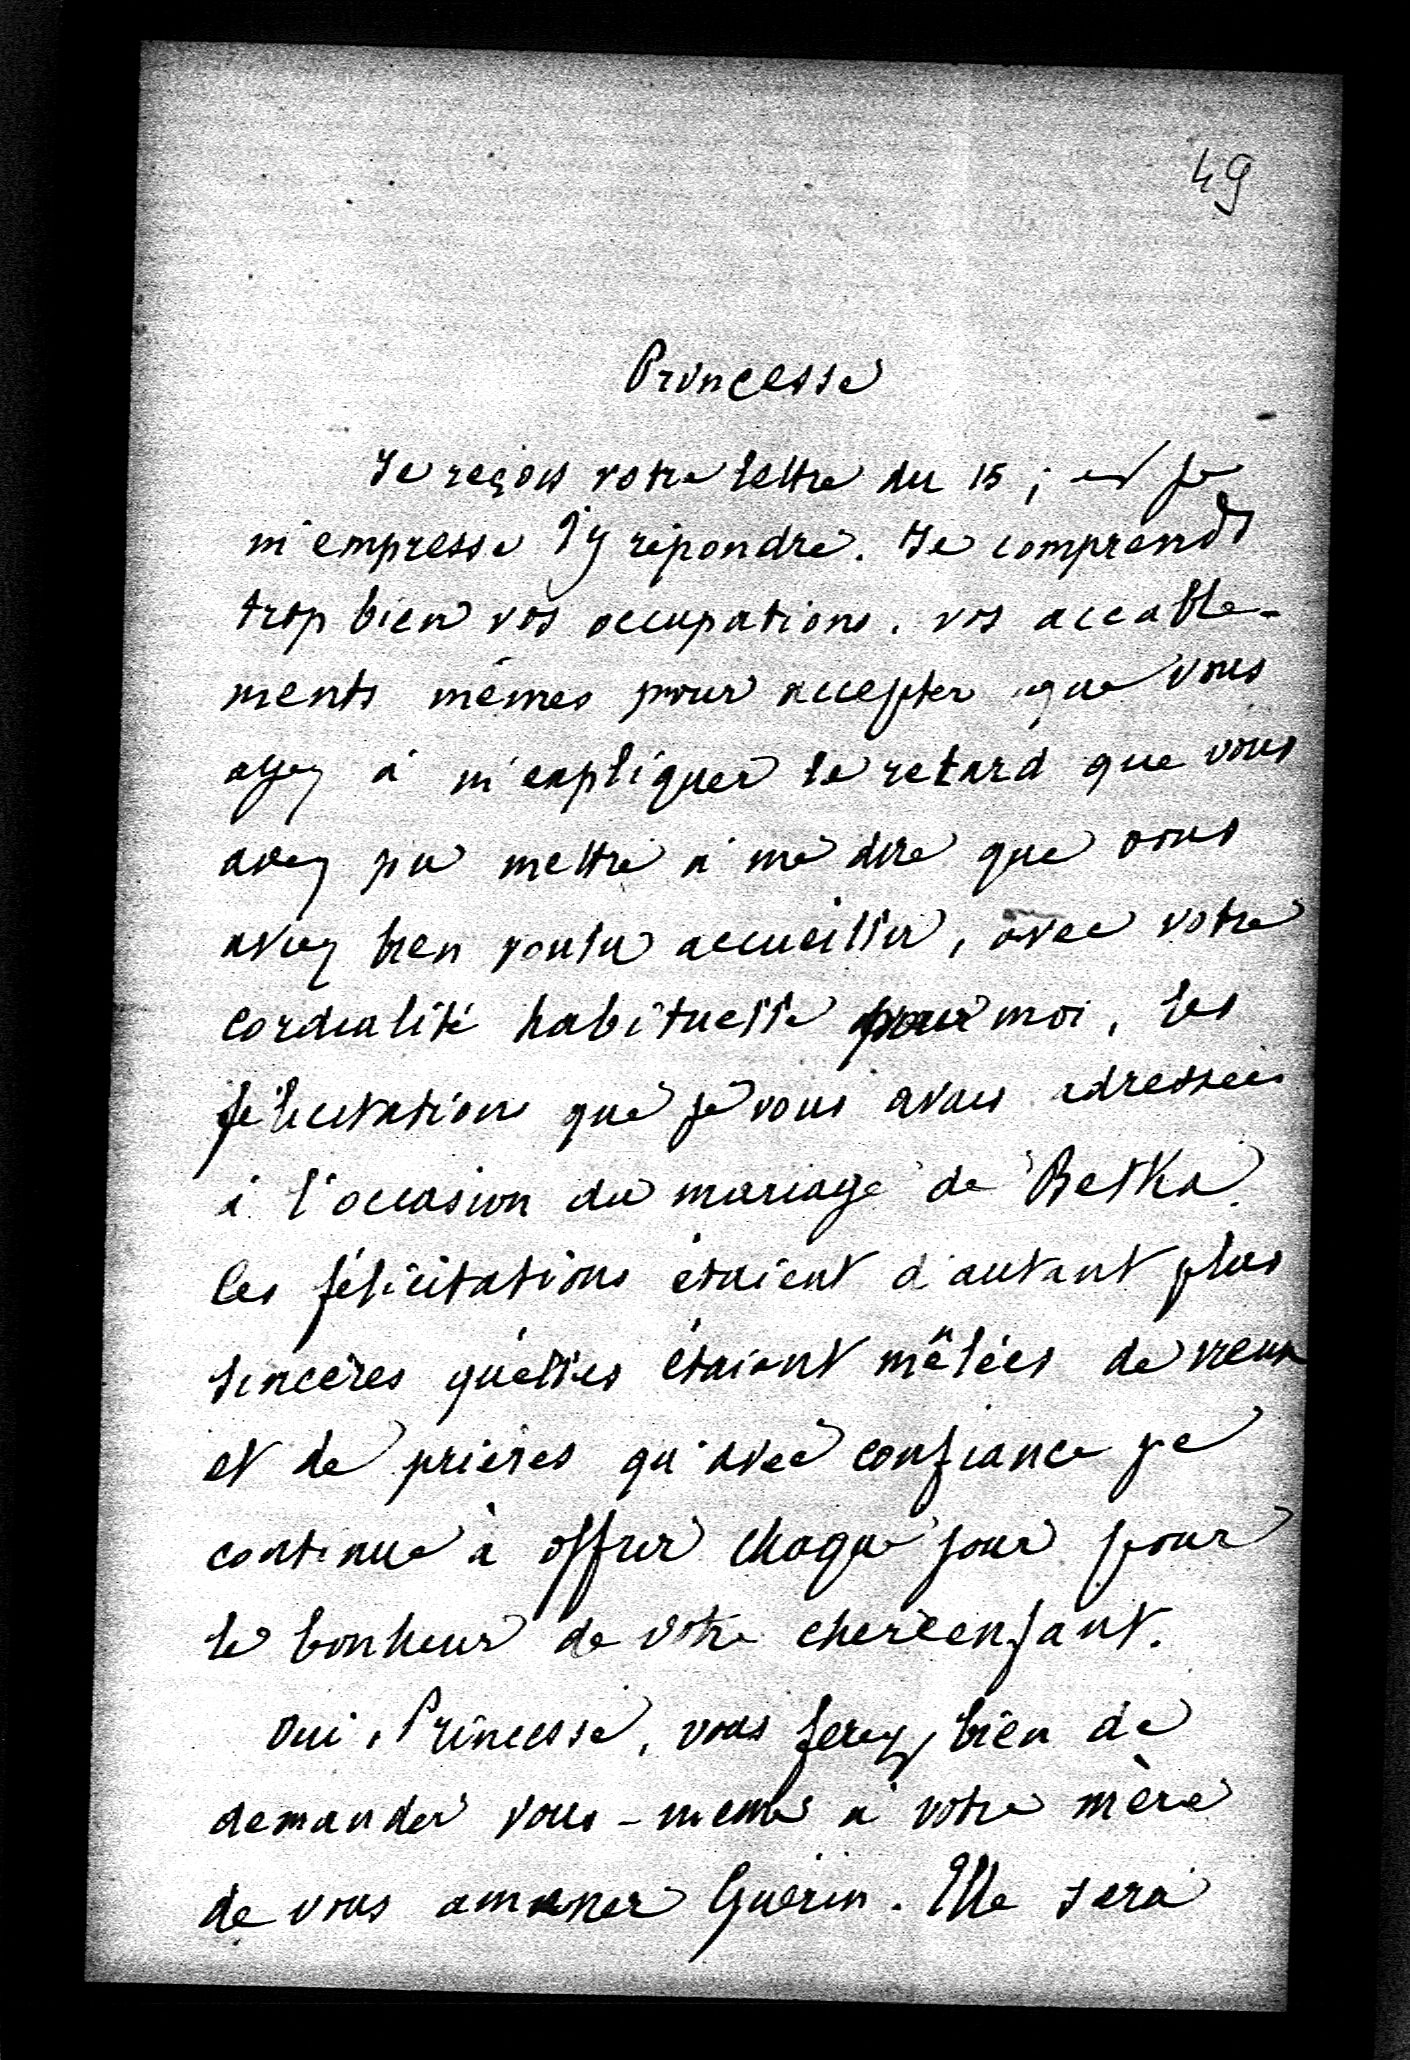 49
Princesse
Je reçois votre lettre du 15 ; et je
m'empresse d'y répondre. Je comprends
trop bien vos occupations, vos accable-
ments mêmes pour accepter que vous
ayez à m'expliquer le retard que vous
avez pu mettre à me dire que vous
aviez bien voulu accueillir, avec votre
cordialité habituelle pour moi, les
félicitations que je vous avais adressées
à l'occasion du mariage de Betka.
Ces félicitations étaient d'autant plus
sincères qu'elles étaient mêlées de vœux
et de prières qu'avec confiance je
continue à offrir chaque jour pour
le bonheur de votre chère enfant.
Oui, Princesse, vous ferez bien de
demander vous-même à votre mère
de vous amener Guérin. Elle sera